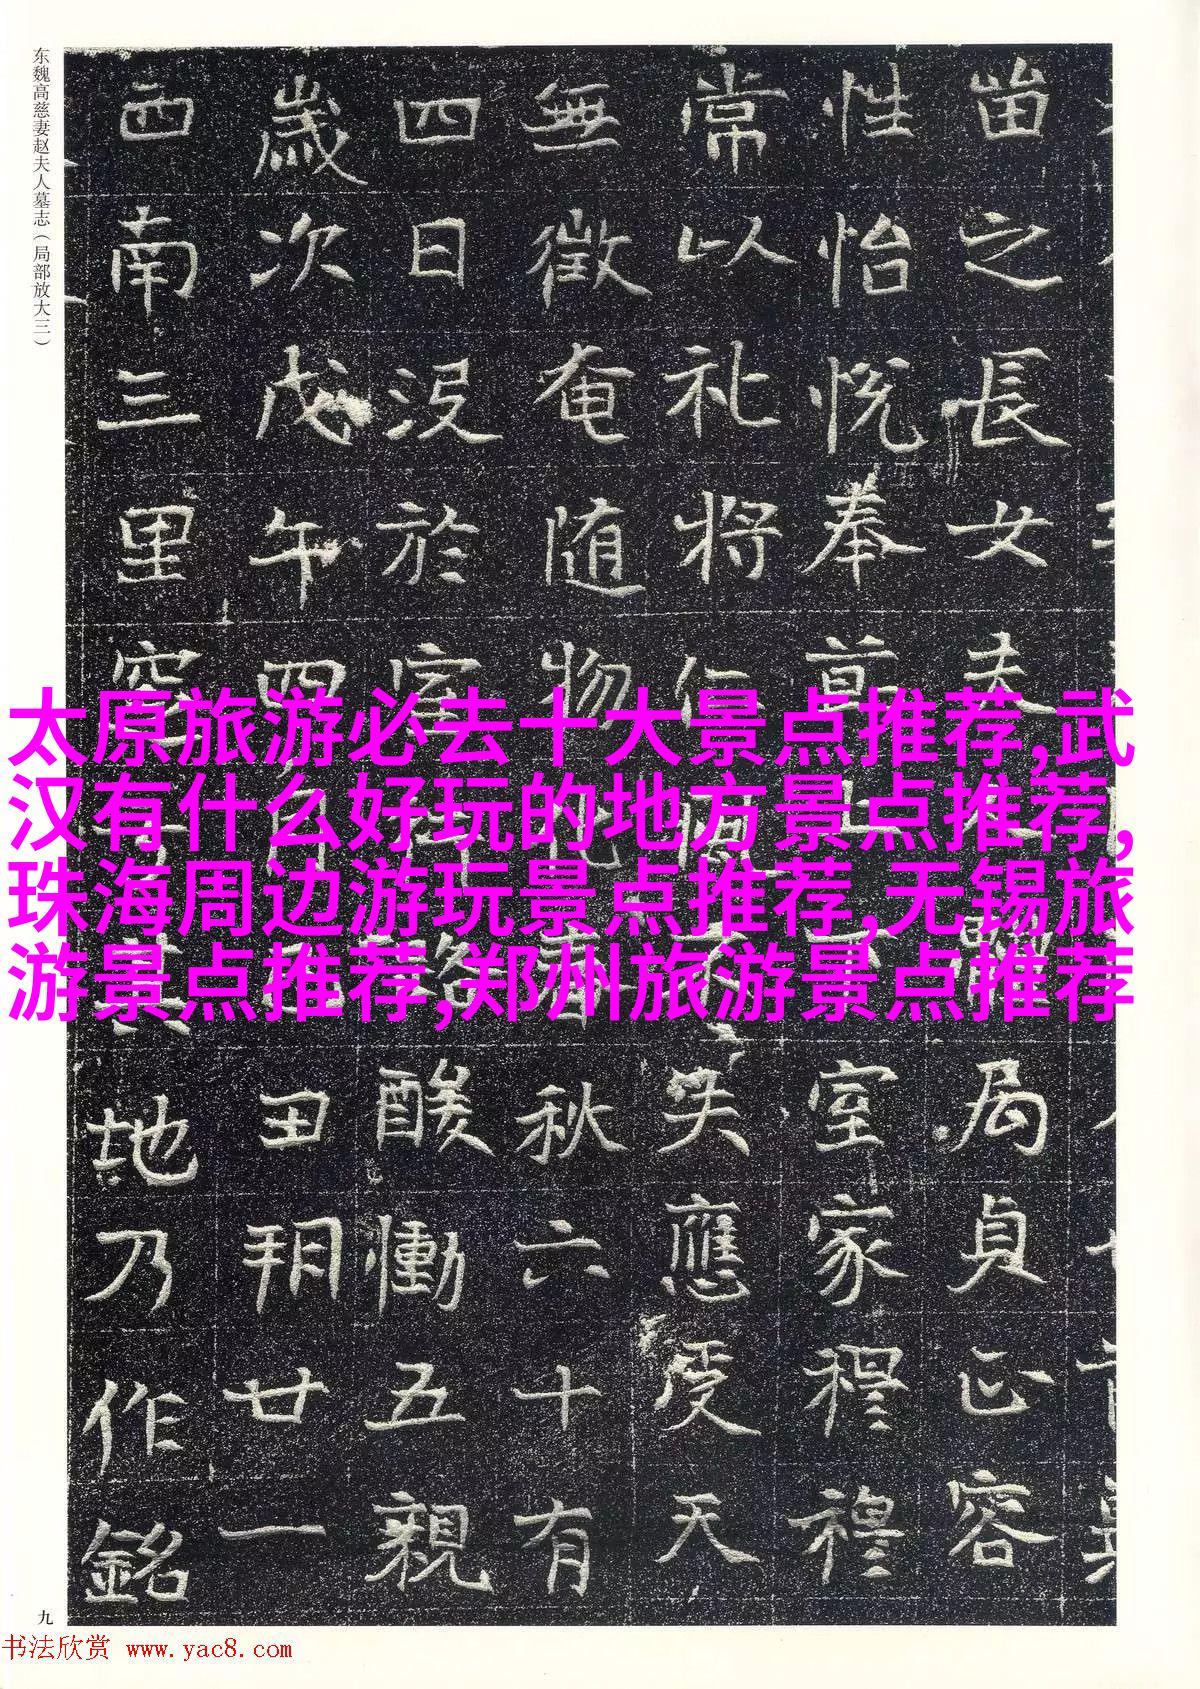 东魏高慈妻赵夫人墓志（局部放大三）
之長女夫局貞正容
性怡悦奉室家穆穆
常以礼将仁失應受天
無徵奄随物化春秋六十有
四日没於官酸慟五親
歲次戊午四月丑朔廿一
西南三里地乃作銘
太原旅游必去十大景点推荐,武
汉有什么好玩的地方景点推荐,
珠海周边游玩景点推荐,无锡旅
游景点推荐,郑州旅游景点推荐
九
书法欣赏 www.yac8.com